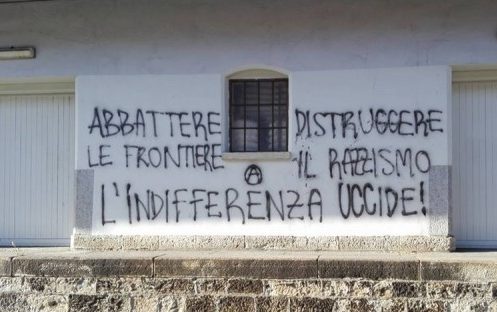 ABBATTERE
LE FRONTIERE
DISTRUGGERE
IL RAZZISMO
A
L'INDIFFERENZA UCCIDE!